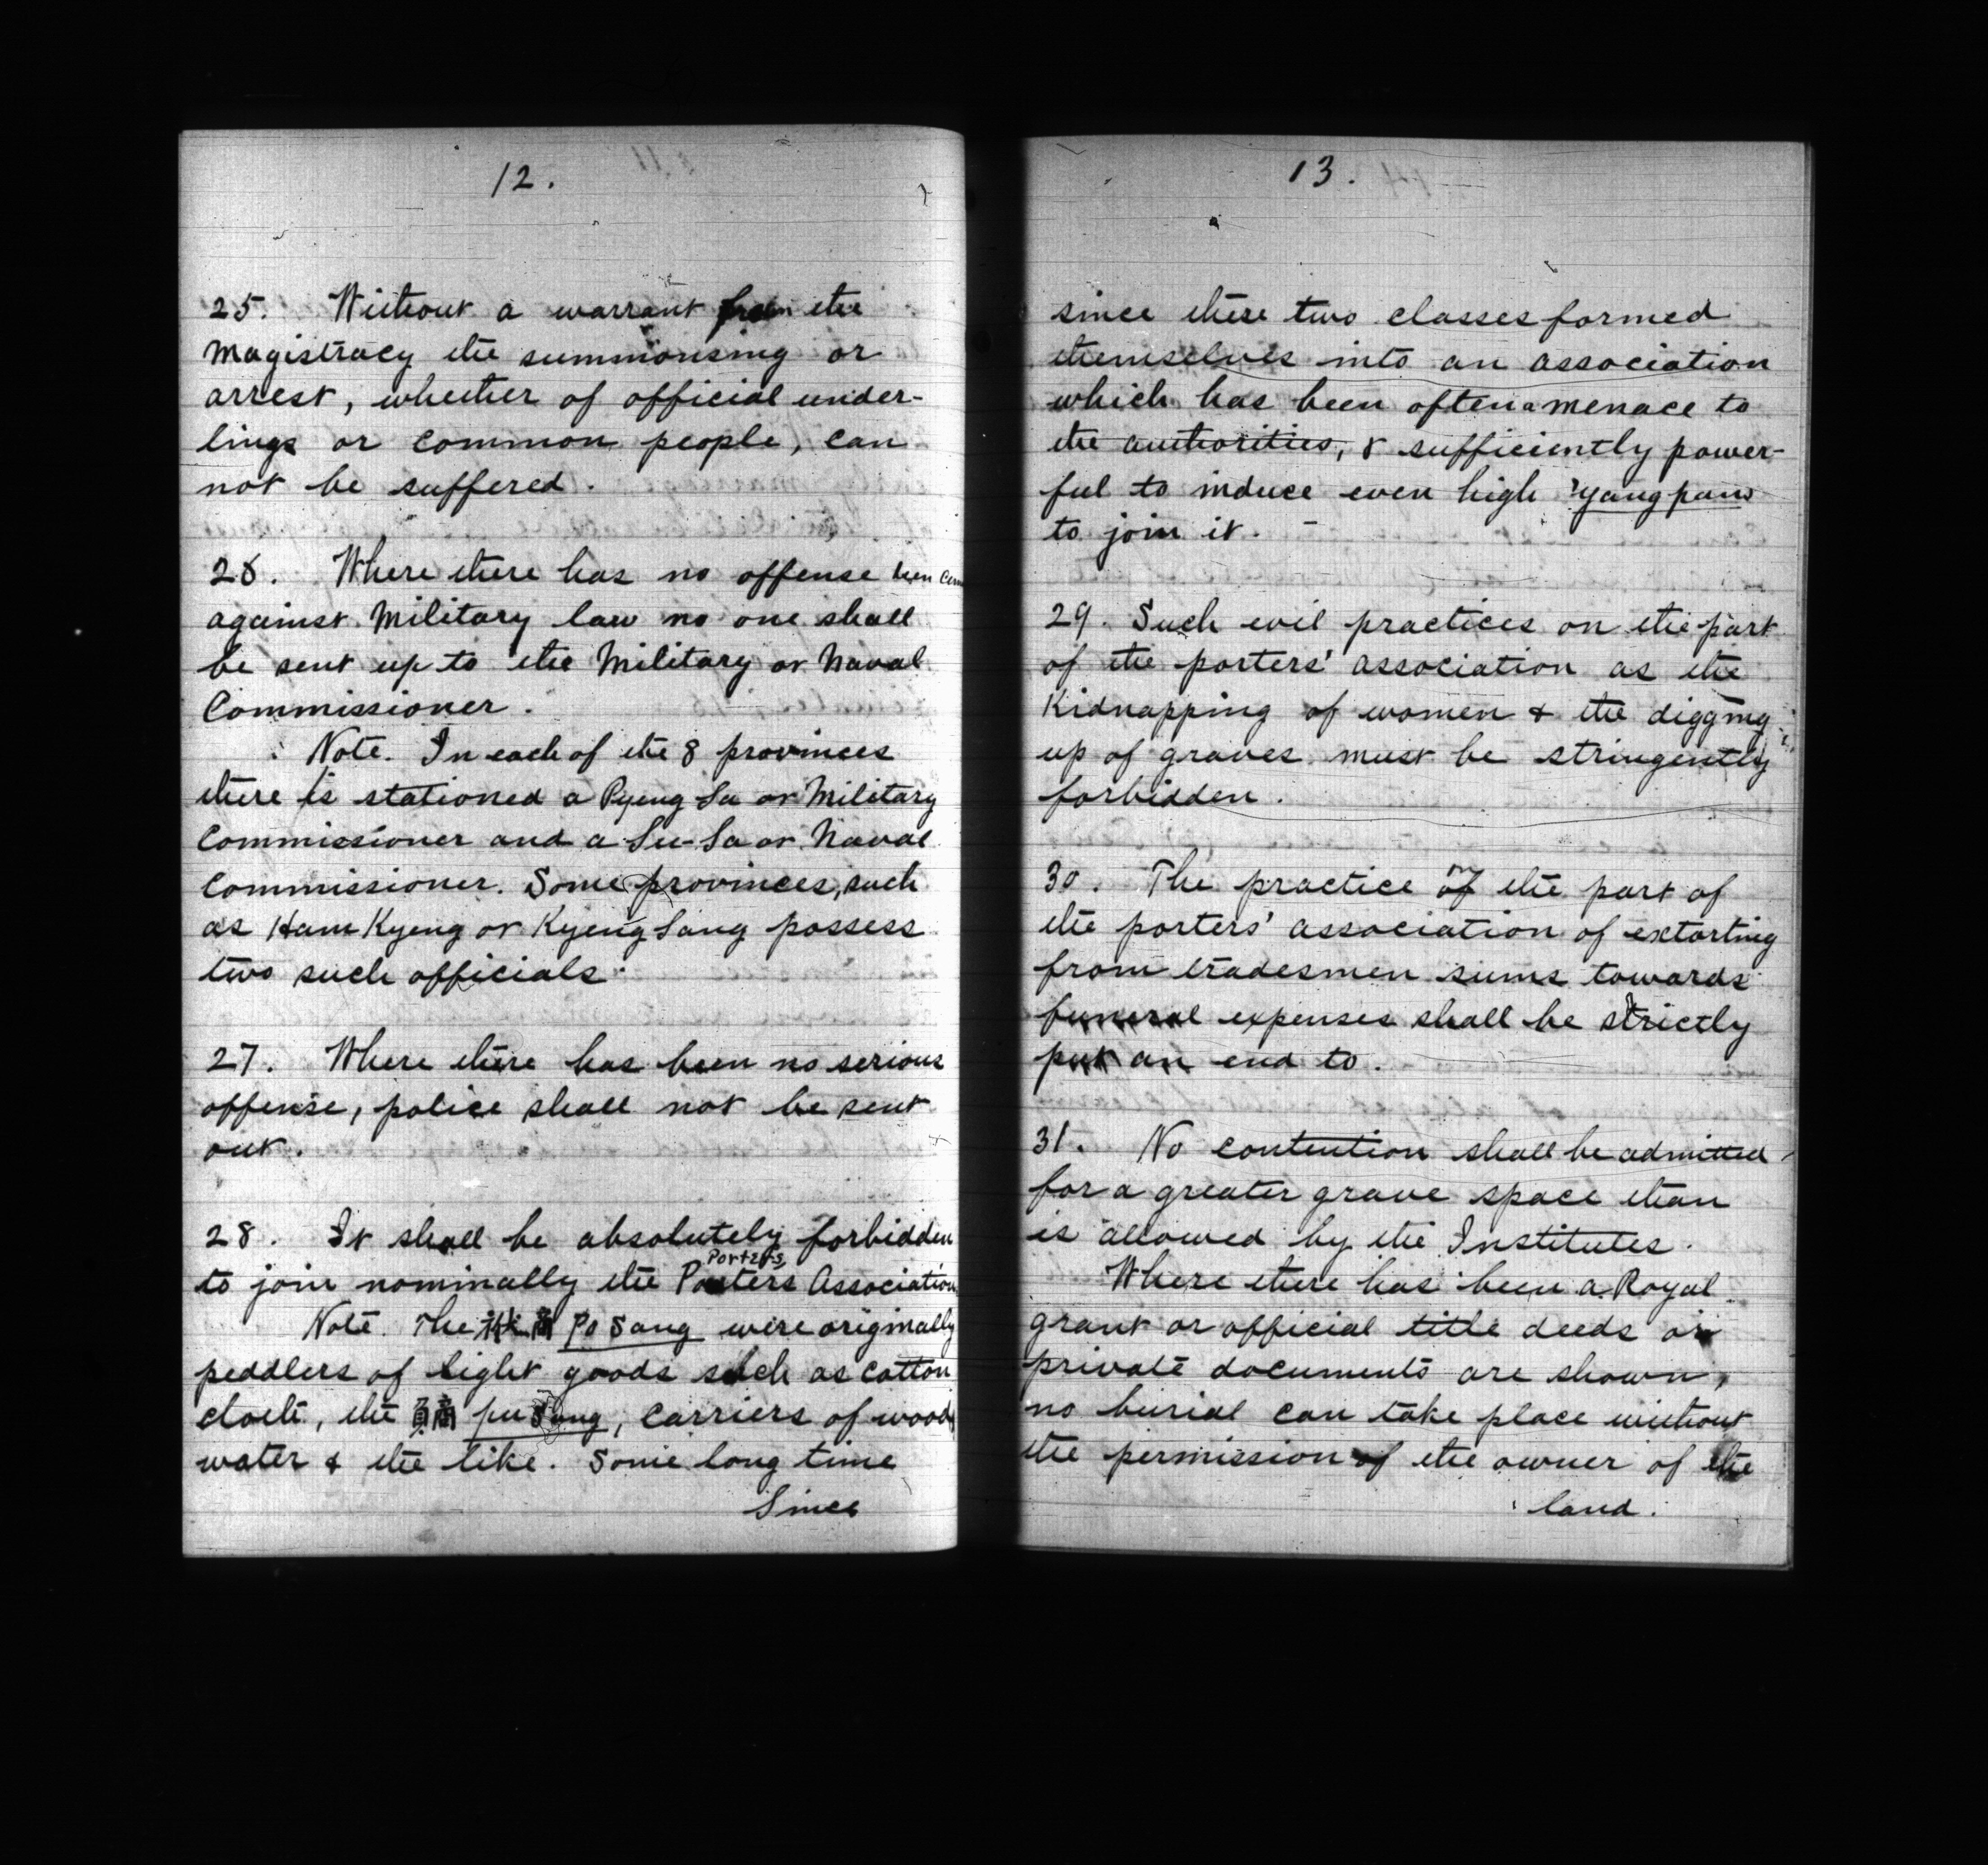 12.
25. Without a warrant from the
Magistracy the summonsing or
arrest, whether of official under-
lings or common people, can
not be suffered.
26. Where there has no offense been
against Military law no one shall
be sent up to the Military or Naval
Commissioner.
Note. In each of the 8 provinces
there is stationed a Pyeng-Sa or Military
Commissioner and a Su-Sa or Naval
Commissioner. Some provinces, such
as Ham Kyeng or Kyeng Sang possess
two such officials.
27. Where there has been no serious
offense, police shall not be sent
out.
28. It shall be absolutely forbidden
Porters,
to join nominally the Porters Association
Note. The 褓商 Po Sang were originally
peddlers of light goods such as cotton
cloth, the 負商 pu Sang, carriers of wood,
water & the like. Some long time
Since
13.
since these two classes formed
themselves into an association
which has been often a menace to
the authorities, & sufficiently power-
ful to induce even high yangpans
to join it.
29. Such evil practices on the part
of the porters' association as the
Kidnapping of women & the digging
up of graves must be stringently
forbidden.
30. The practice on the part of
the porters' association of extorting
from tradesmen sums towards
funeral expenses shall be strictly
put an end to.
31. No contention shall be admitted
for a greater grave space than
is allowed by the Institutes.
Where there has been a Royal
grant or official title deeds or
private documents are shown,
no burial can take place without
the permission of the owner of the
land.